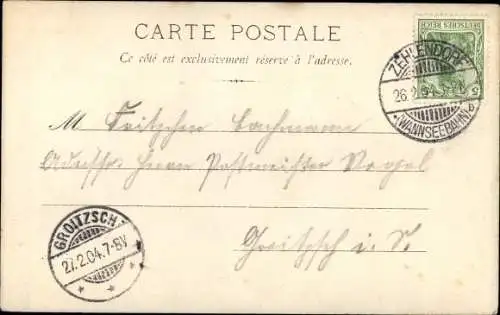 CARTE POSTALE
Ce côté est exclusivement réservé à l'adresse.
DEUTSCHES REICH
5
ZEHLENDORF
26.2.04
(WANNSEEBAHN)
b
M. Fritzchen Bachmann
Adresse: Herrn Postmeister Vogel
GROITZSCH
27.2.04.7-8V
* * *
Groitzsch i. S.